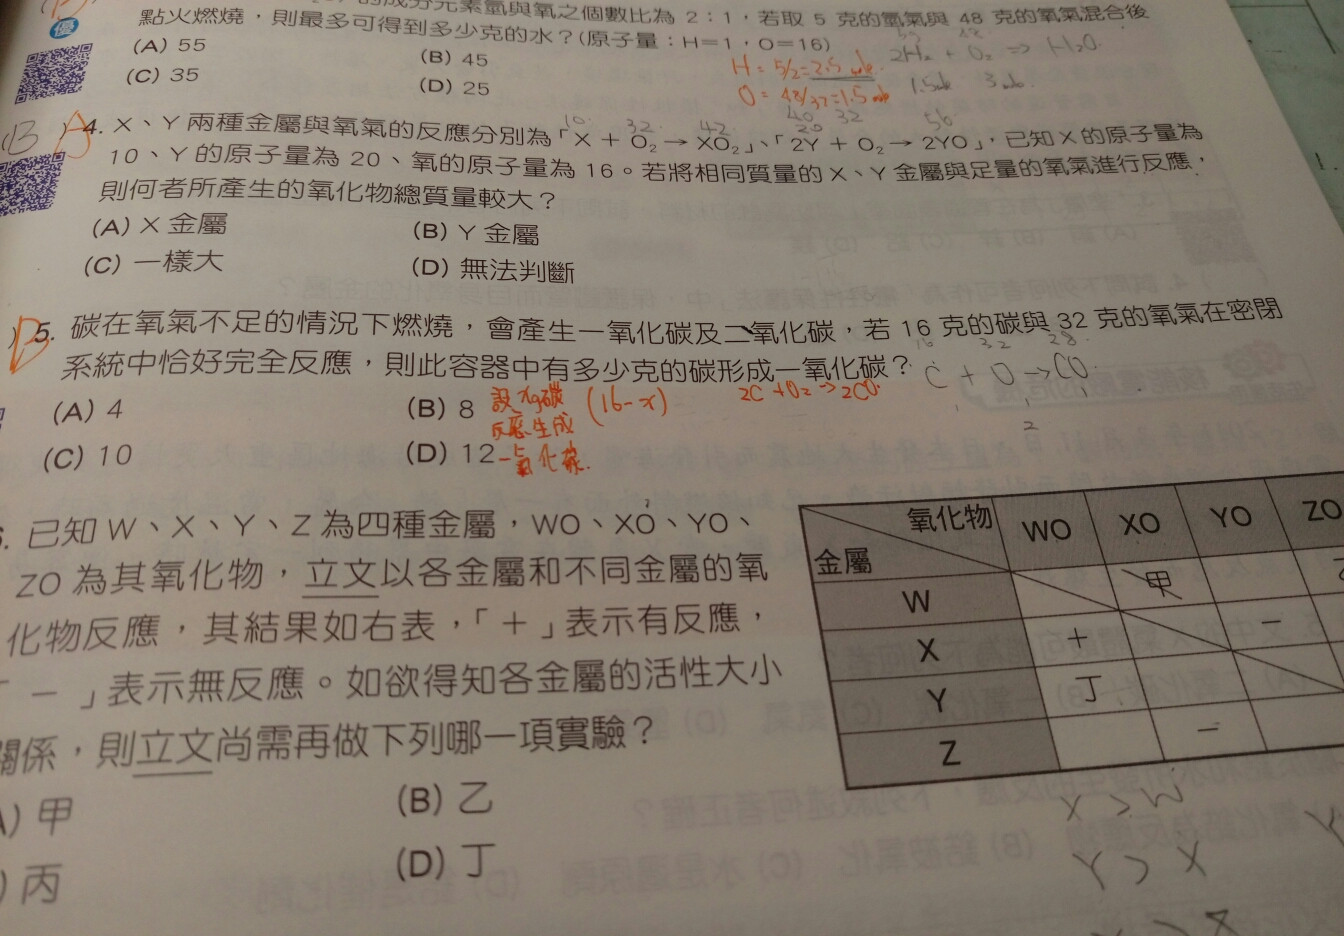 的成分元素氫與氧之個數比為 2：1，若取 5 克的氫氣與 48 克的氧氣混合後
點火燃燒，則最多可得到多少克的水？(原子量：H＝1，O＝16)
優
(A) 55
(B) 45
(C) 35
(D) 25
2H₂ + O₂ => H₂O
H = 5/2=2.5 mole
O = 48/32=1.5 mole
1.5mole 3 mole
(B) A 4. X、Y 兩種金屬與氧氣的反應分別為「X + O₂ → XO₂」、「2Y + O₂ → 2YO」，已知 X 的原子量為
10 32 42 40 20 32 56
10、Y 的原子量為 20、氧的原子量為 16。若將相同質量的 X、Y 金屬與足量的氧氣進行反應，
則何者所產生的氧化物總質量較大？
(A) X 金屬
(B) Y 金屬
(C) 一樣大
(D) 無法判斷
) B 5. 碳在氧氣不足的情況下燃燒，會產生一氧化碳及二氧化碳，若 16 克的碳與 32 克的氧氣在密閉
系統中恰好完全反應，則此容器中有多少克的碳形成一氧化碳？
16 32 28
C + O → CO
(A) 4
(B) 8
設 xg碳 (16-x) 2C + O₂ → 2CO
反應生成
一氧化碳
2
(C) 10
(D) 12
6. 已知 W、X、Y、Z 為四種金屬，WO、XO、YO、
ZO 為其氧化物，立文以各金屬和不同金屬的氧
化物反應，其結果如右表，「＋」表示有反應，
「－」表示無反應。如欲得知各金屬的活性大小
關係，則立文尚需再做下列哪一項實驗？
(A) 甲
(B) 乙
丙
(D) 丁
氧化物 WO XO YO ZO
金屬
W 甲
X ＋ －
Y 丁
Z －
X > W
Y > X